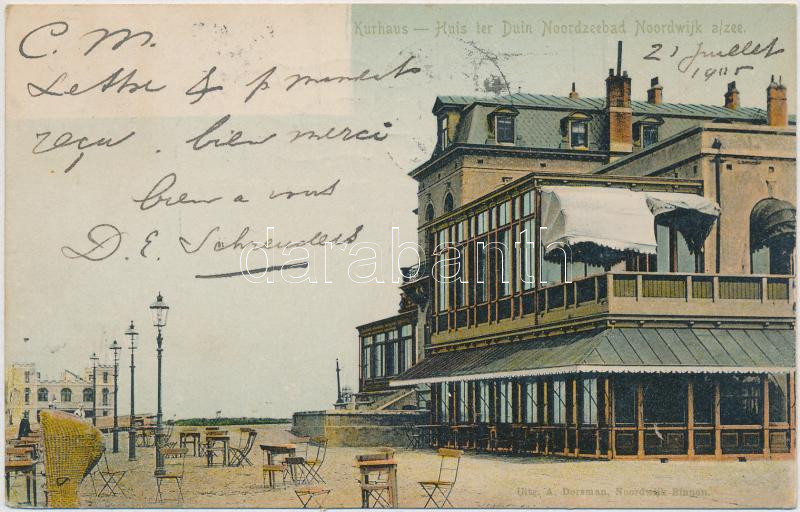 Kurhaus — Huis ter Duin Noordzeebad Noordwijk a/zee.
21 Juillet
1905
C. M.
Lettre & p mandat
reçu. bien merci
bien a vous
D. E. Schreuders
darabanth
Uitg. A. Dorsman, Noordwijk-Binnen.